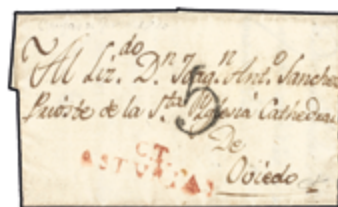 Al Liz.do D.n Joaq.n Ant.o Sanchez
Prioste de la S.ta Yglesia Cathedral
De
Oviedo
5
ASTURIAS